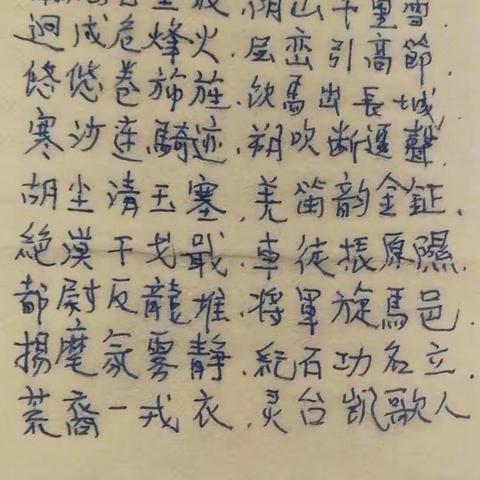 山千里雪
迥戍危烽火.层峦引高節.
悠悠卷旆旌.饮馬出長城.
寒沙连騎迹.朔吹断邊聲.
胡尘清玉塞.羌笛韵金鉦.
絕漠干戈戢.車徒振原隰.
都尉反龍堆.将軍旋馬邑.
揚麾氛雾静.紀石功名立.
荒裔一戎衣.灵台凯歌人